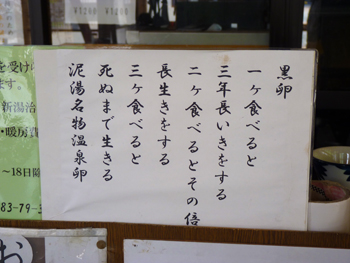 黒卵
一ヶ食べると
三年長いきをする
二ヶ食べるとその倍
長生きをする
三ヶ食べると
死ぬまで生きる
泥湯名物温泉卵
を受け
ます
新湯治
・暖房費
～18日
83-79-5
お